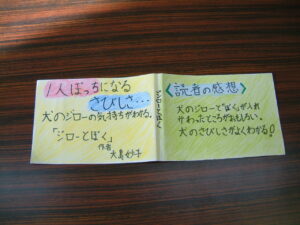 1人ぼっちになる
さびしさ…
犬のジローの気持ちがわかる。
「ジローとぼく」
作者
大島妙子
ジローとぼく
＜読者の感想＞
犬のジローと"ぼく"が入れ
かわったところがおもしろい。
犬のさびしさがよくわかる!